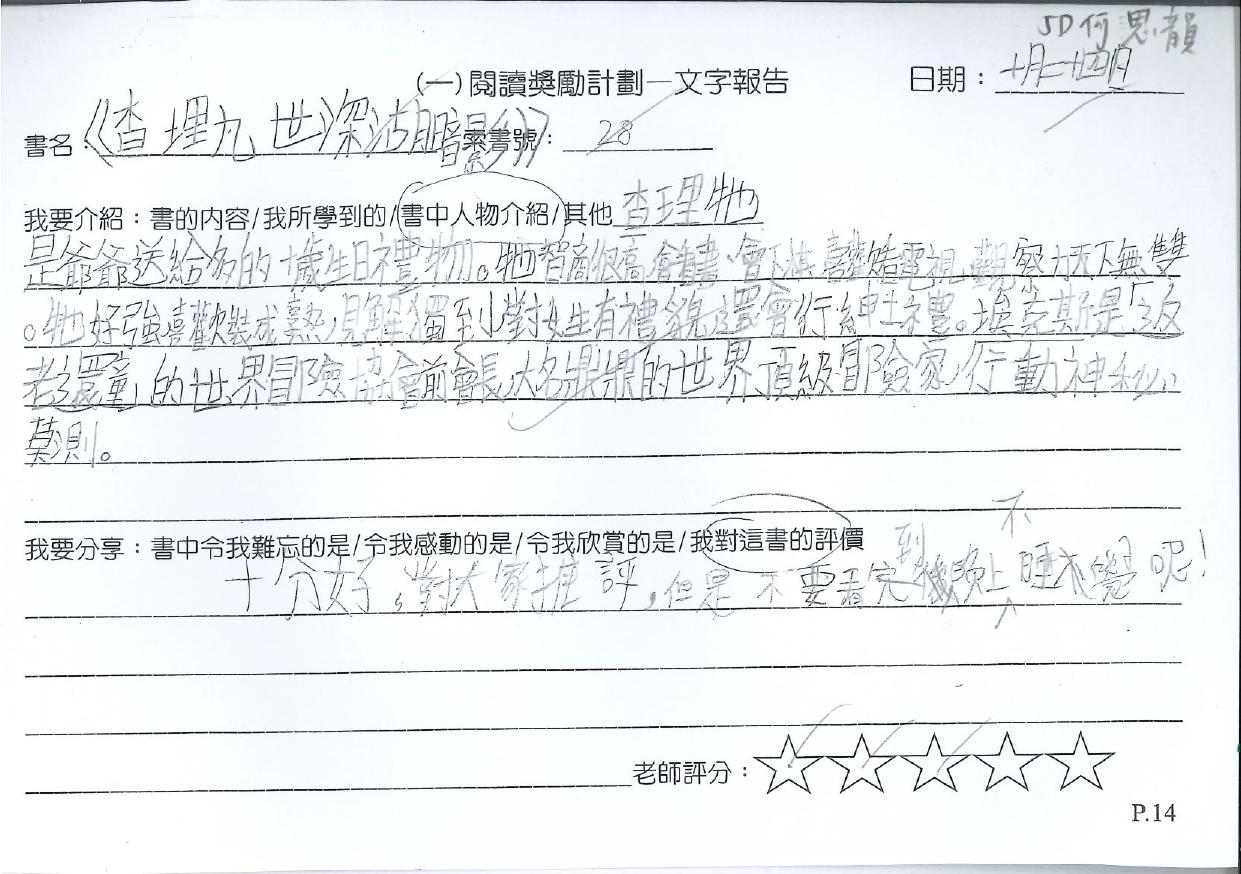 5D 何思韻
(一) 閱讀獎勵計劃—文字報告 日期：十月二十四日
書名：《查理九世深湖暗影》 索書號：28
我要介紹：書的內容/我所學到的/書中人物介紹/其他 查理牠
是爺爺送給多的十歲生日禮物。牠智商很高,會看書,會下棋,護語電視,觀察力天下無雙
。牠好強喜歡裝成熟,見解獨到,對女生有禮貌,還會行紳士禮。埃克斯是「返
老還童」的世界冒險協會前會長,大名鼎鼎的世界頂級冒險家,行動神秘
莫測。
我要分享：書中令我難忘的是/令我感動的是/令我欣賞的是/我對這書的評價
十分好,對大家推評,但是不要看完到晚上不睡覺呢！
老師評分：
P.14